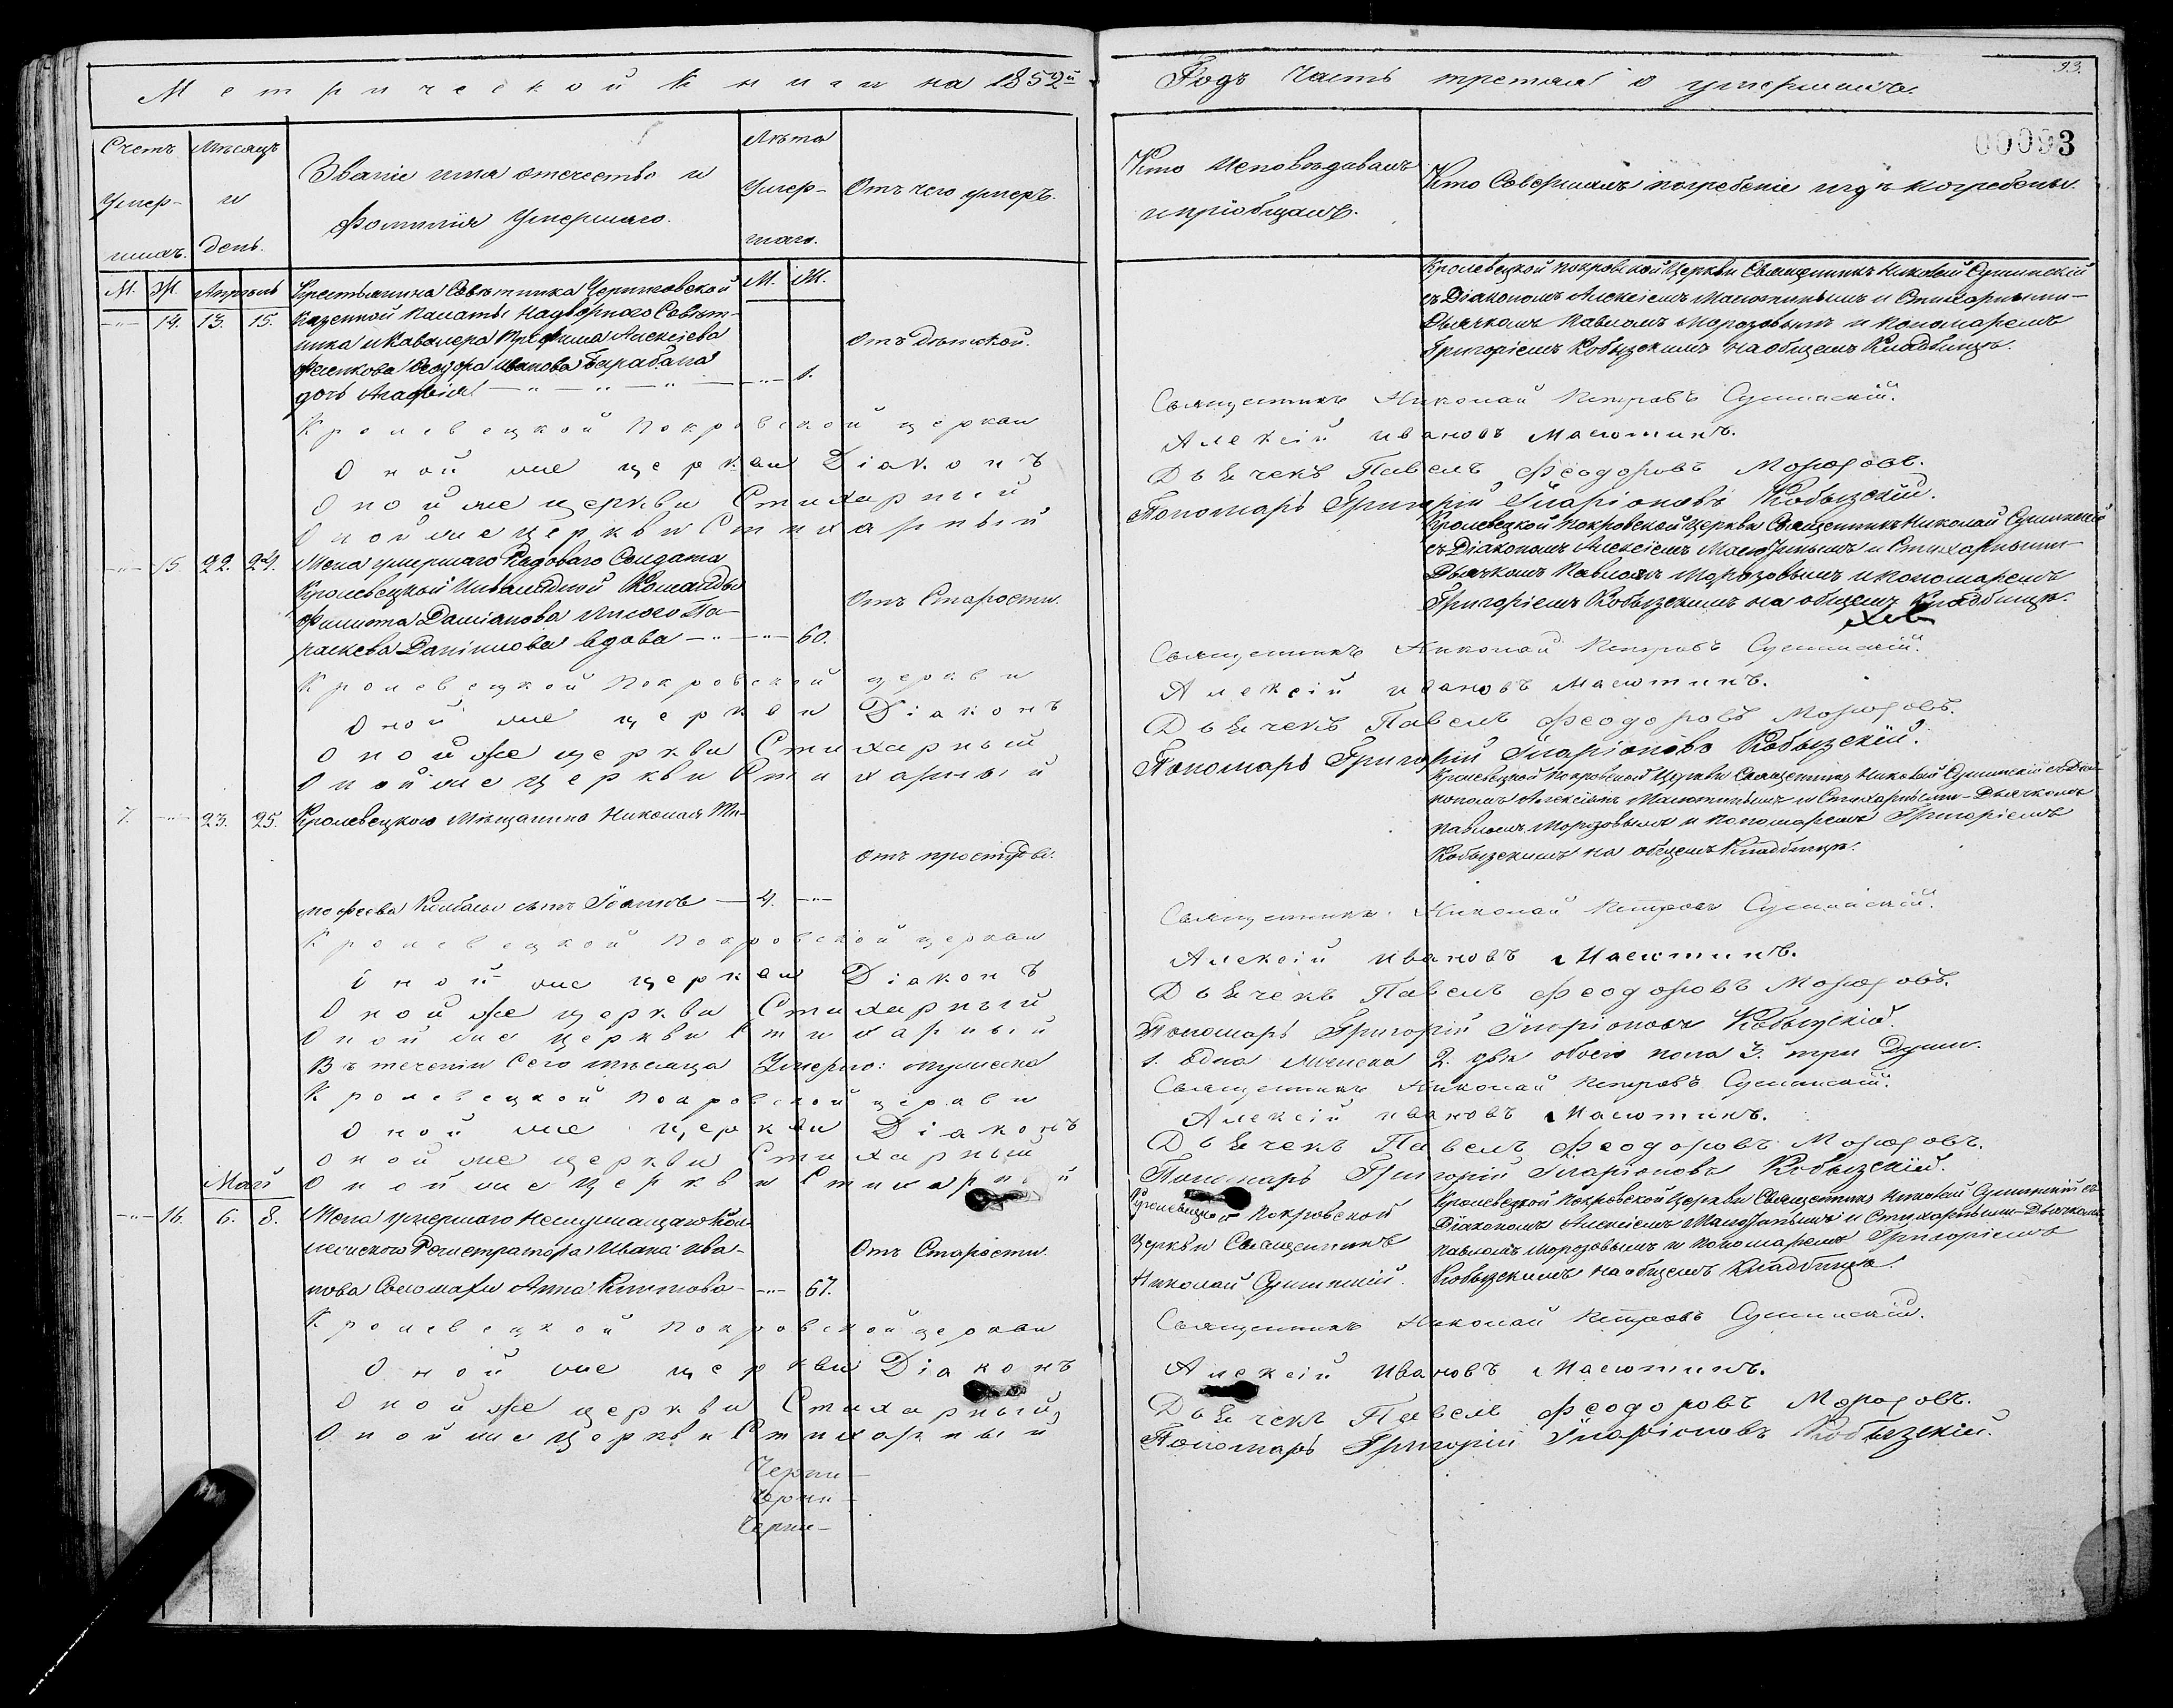 Метрической Книги на 1852й
Годъ Часть третая о умершихъ.
93.
00093
Счетъ Умер-шихъ.
Мѣсяцъ и день.
Званіе имя отечество и
Фамилія Умершаго.
Лѣта Умер-шаго.
Отъ чего умеръ.
Кто Исповѣдывалъ
и пріобщалъ.
Кто Совершалъ погребеніе и гдѣ погребены.
М. Ж. Апрѣль
М. Ж.
—"— 14. 13. 15.
Крестьянина Совѣтника Черниговской
Казенной Палаты Надворнаго Совѣт-
ника и Кавалера Алексіева
Феодора Иванова Барабана
дочь Агафія —"—"—"— 1.
Отъ дѣтской.
Кролевецкой Покровской Церкви Священникъ Николай
съ Діакономъ Алексіемъ Масютинымъ и Стихарными—
Дьячкомъ Павломъ Морозовымъ и Пономаремъ
Григоріемъ Кобызскимъ на общемъ Кладбищѣ.
Кролевецкой Покровской церкви
Священникъ Николай Петровъ
Оной же церкви Діаконъ
Алексій Ивановъ Масютинъ.
Оной же церкви Стихарный
Дьячекъ Павелъ Феодоровъ Морозовъ.
Оной же церкви Стихарный
Пономарь Григорій Иларіоновъ Кобызскій.
—"— 15. 22. 24.
Жена умершаго Рядоваго Солдата
Кролевецкой Инвалидной Команды
Филипа Даміанова Па-
раскева Даніилова вдова —"—"— 60.
Отъ Старости.
Кролевецкой Покровской Церкви Священникъ Николай
съ Діакономъ Алексіемъ Масютинымъ и Стихарными
Дьячкомъ Павломъ Морозовымъ и Пономаремъ
Григоріемъ Кобызскимъ на общемъ Кладбищѣ.
Кролевецкой Покровской церкви
Священникъ Николай Петровъ
Оной же церкви Діаконъ
Алексій Ивановъ Масютинъ.
Оной же церкви Стихарный
Дьячекъ Павелъ Феодоровъ Морозовъ.
Оной же церкви Стихарный
Пономарь Григорій Иларіоновъ Кобызскій.
7. —"— 23. 25.
Кролевецкого Мѣщанина Николая Ти-
мофеева сынъ Іоаннъ — 4. —"—
Отъ простуды.
Кролевецкой Покровской Церкви Священникъ Николай съ Діа-
кономъ Алексіемъ Масютинымъ и Стихарными—Дьячкомъ
Павломъ Морозовымъ и Пономаремъ Григоріемъ
Кобызскимъ на общемъ Кладбищѣ.
Кролевецкой Покровской церкви
Священникъ Николай Петровъ
Оной же церкви Діаконъ
Алексій Ивановъ Масютинъ.
Оной же церкви Стихарный
Дьячекъ Павелъ Феодоровъ Морозовъ.
Оной же церкви Стихарный
Пономарь Григорій Иларіоновъ Кобызскій.
Въ теченіи Сего мѣсяца Умерло: мужеска
1. Една женска 2. двѣ обоего пола 3. три Души.
Кролевецкой Покровской церкви
Священникъ Николай Петровъ
Оной же церкви Діаконъ
Алексій Ивановъ Масютинъ.
Оной же церкви Стихарный
Дьячекъ Павелъ Феодоровъ Морозовъ.
Май
Оной же церкви Стихарный
Пономарь Григорій Иларіоновъ Кобызскій.
—"— 16. 6. 8.
Жена умершаго Неслужащаго Кол-
лежского Регистратора Ивана Ива-
нова Соломахи Анна —"— 67.
Отъ Старости.
Кролевецкой Покровской
Церкви Священникъ
Николай
Кролевецкой Покровской Церкви Священникъ Николай съ
Діакономъ Алексіемъ Масютинымъ и Стихарными—Дьячкомъ
Павломъ Морозовымъ и Пономаремъ Григоріемъ
Кобызскимъ на общемъ Кладбищѣ.
Кролевецкой Покровской церкви
Священникъ Николай Петровъ
Оной же церкви Діаконъ
Алексій Ивановъ Масютинъ.
Оной же церкви Стихарный
Дьячекъ Павелъ Феодоровъ Морозовъ.
Оной же церкви Стихарный
Пономарь Григорій Иларіоновъ Кобызскій.
Черни—
Черни—
Черни—